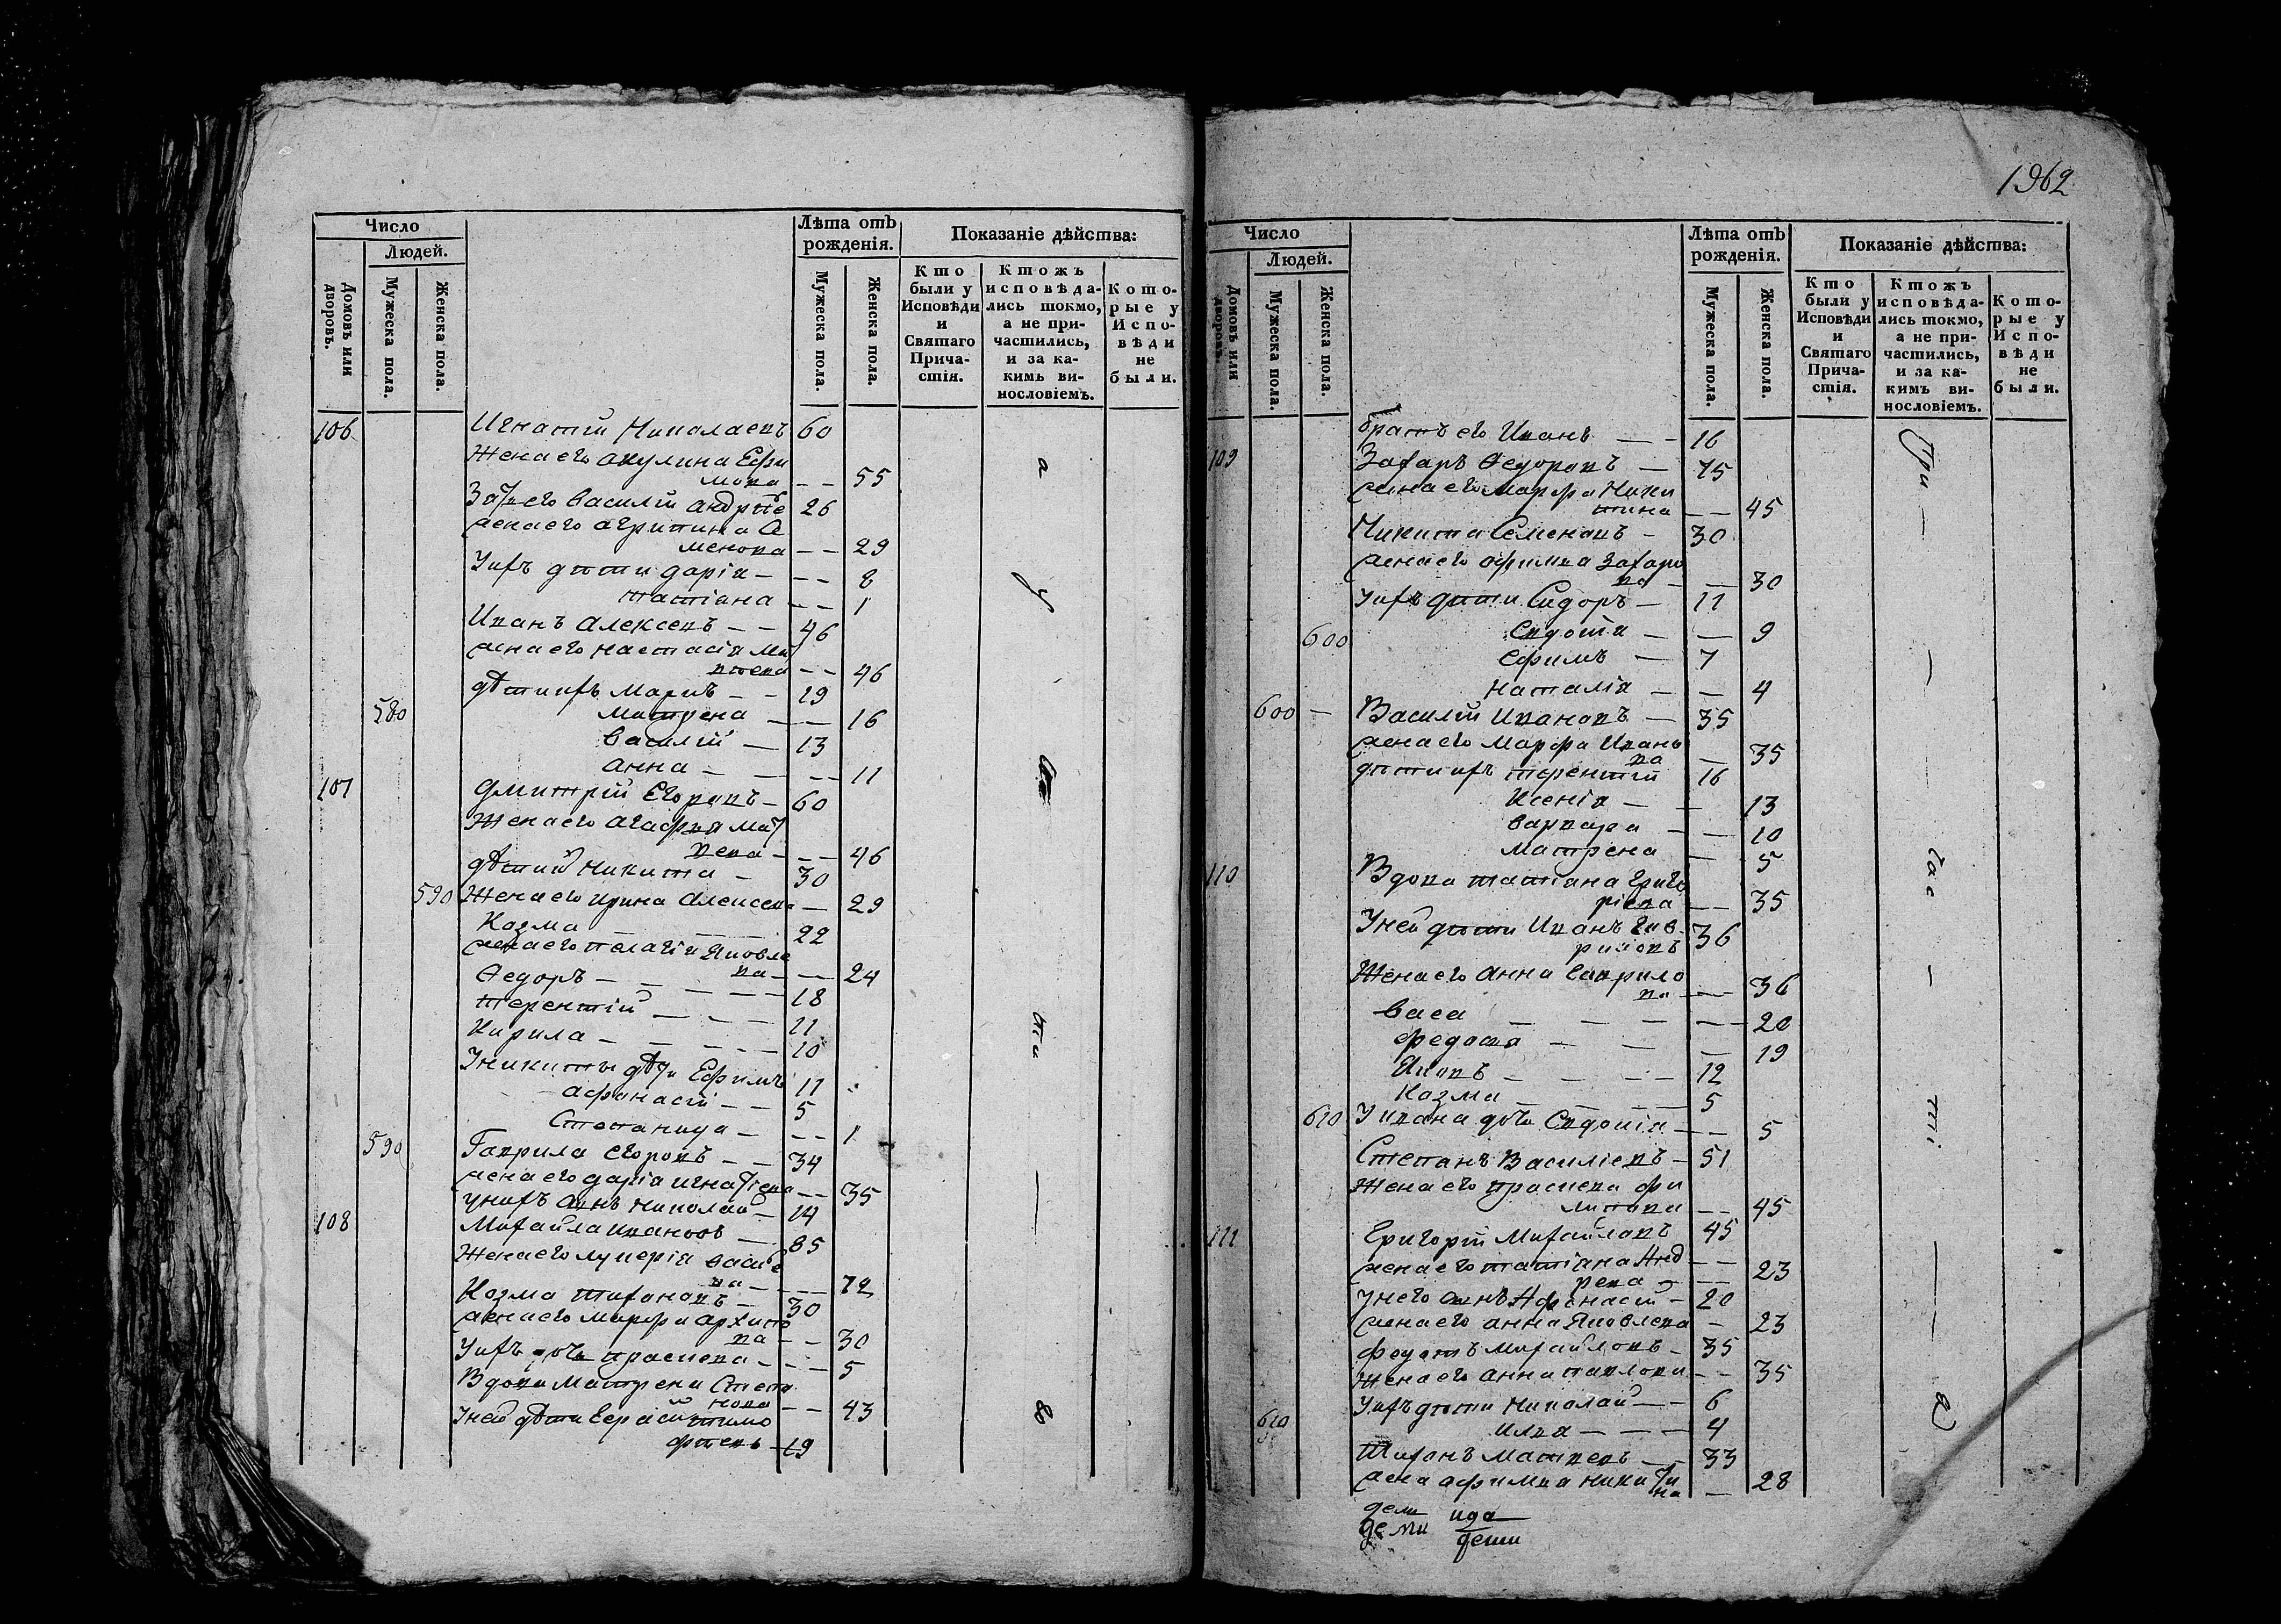 1962
Число
Людей.
Домовъ или дворовъ.
Мужеска пола.
Женска пола.
Лѣта отъ рожденія.
Мужеска пола.
Женска пола.
Показаніе дѣйства:
Кто были у Исповѣди и Святаго Причастія.
Ктожъ исповѣдались токмо, а не причастились, и за какимъ винословіемъ.
Которые у Исповѣди не были.
106 Игнатій Николаевъ 60
Жена его Акулина Ефи
мова – – 55
Зять его Василій Андрѣе 26
жена его Агрипина Се
менова – – 29
У ихъ дѣти Дарія – – – 8
Татіана – – 1
Иванъ Алексеевъ – – 46
жена его Настасія Ма
твева – – 46
дѣти ихъ Маркъ – – 19
580 Матрена – – 16
Василій – 13
Анна – – – – 11
107 Дмитрій Егоровъ – 60
Жена его Агафія Мат
вева – – – 46
дѣти Никита – 30
590 Жена его Ирина Алексеева – 29
Козма – – – 22
жена его Пелагія Яковле
ва – – 24
Федоръ – – – – – 18
Терентій – – – 11
Кирила – – – – – 10
У Никиты дѣти Ефимъ 11
Афонасій – – 5
Степанида – – – 1
590 Гаврила Егоровъ – – 34
жена его Дарія Игнатіева – – 35
у нихъ сынъ Николай – 14
108 Михайла Ивановъ – 85
Жена его Лукерія Васи
ва – – – 72
Козма Тихановъ – 30
жена его Марфа Архипо
ва – – 30
У ихъ дочь Праскева – – – 5
Вдова Матрена Степа
нова – – 43
У ней дѣти Герасимъ Тимо
фтевъ – 19
Число
Людей.
Домовъ или дворовъ.
Мужеска пола.
Женска пола.
Лѣта отъ рожденія.
Мужеска пола.
Женска пола.
Показаніе дѣйства:
Кто были у Исповѣди и Святаго Причастія.
Ктожъ исповѣдались токмо, а не причастились, и за какимъ винословіемъ.
Которые у Исповѣди не были.
братъ его Иванъ – – 16
109 Захаръ Федоровъ – 75
жена его Марфа Ники
тина – – 45
Никита Семеновъ – 30
жена его Офимва Захаро
ва – – 30
У ихъ дѣти Сидоръ – 11
600 Евдотія – – 9
Ефимъ – 7
Наталія – – 4
600 – Василій Ивановъ – 35
жена его Марфа Ивано
ва – 35
дѣти ихъ Терентій 16
Ксенія – – 13
Варвара – – 10
Матрена – 5
110 Вдова Татіана Григо
ріева – – 35
У ней дѣти Иванъ Гав
риловъ 36
Жена его Анна Гаврило
ва – – 36
Васа – – – – – 20
Федосия – – – 19
Яковъ – – – – 12
Козма – – – 5
610 У Ивана дочь Евдокія – – 5
Степанъ Василіевъ – 51
Жена его Праскева Фи
липова – – 45
111 Григорій Михайловъ 45
жена его Татіана Анд – –
рева – – 23
У него сынъ Афонасій – 20
жена его Анна Яковлева – – 23
Федотъ Михайловъ – 35
Жена его Анна Павлова – – 35
У ихъ дѣти Николай – – 6
610 Илва – – – 4
Тиханъ Матвевъ – – 33
жена Афимва Никити
на – 28